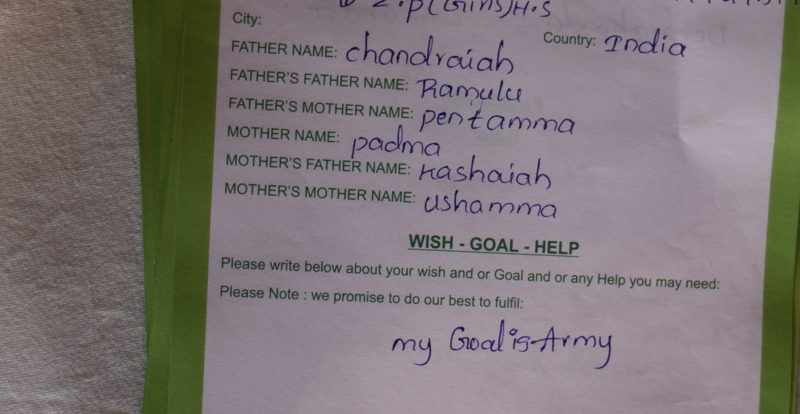 Z.p(Girls)H.S
City:
Country: India
FATHER NAME: chandraiah
FATHER'S FATHER NAME: Ramulu
FATHER'S MOTHER NAME: pentamma
MOTHER NAME: padma
MOTHER'S FATHER NAME: Kashaiah
MOTHER'S MOTHER NAME: ushamma
WISH - GOAL - HELP
Please write below about your wish and or Goal and or any Help you may need:
Please Note : we promise to do our best to fulfil:
my Goal is Army